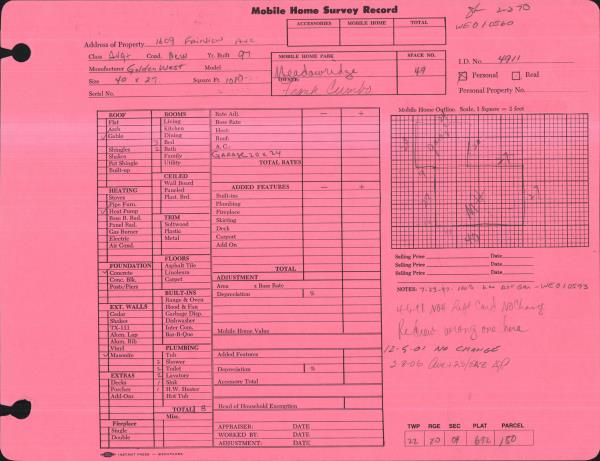 Mobile Home Survey Record
2-270
WE010560
ACCESSORIES MOBILE HOME TOTAL
Address of Property 1609 Fairview Ave
Class Avg+ Cond. New Yr. Built 97
Manufacturer Golden West Model
Size 40 x 27 Square Ft. 1080
Serial No.
MOBILE HOME PARK SPACE NO.
Meadowridge 49
Frank Cumbo
I.D. No. 4911
Personal Real
Personal Property No.
ROOF
Flat
Arch
Gable
Shingles
Shakes
Pat Shingle
Built-up
HEATING
Stoves
Pipe Furn.
Heat Pump
Base B. Rad.
Panel Rad.
Gas Burner
Electric
Air Cond.
FOUNDATION
Concrete
Conc. Blk.
Posts/Piers
EXT. WALLS
Cedar
Shakes
TX-111
Alum. Lap
Alum. Rib
Vinyl
Masonite
EXTRAS
Decks
Porches
Add-Ons
Fireplace
Single
Double
ROOMS
Living
Kitchen
Dining
3 Bed
2 Bath
Family
Utility
CEILED
Wall Board
Paneled
Plast. Brd.
TRIM
Softwood
Plastic
Metal
FLOORS
Asphalt Tile
Linoleum
Carpet
BUILT-INS
Range & Oven
Hood & Fan
Garbage Disp.
Dishwasher
Inter Com.
Bar-B-Que
PLUMBING
Tub
Shower
2 Toilet
2 Lavatory
1 Sink
1 H.W. Heater
Hot Tub
TOTAL 8
Misc.
Rate Adj. - +
Base Rate
Heat:
Roof:
A.C.
Garage 20 x 24
TOTAL RATES
ADDED FEATURES - +
Built-ins
Plumbing
Fireplace
Skirting
Deck
Carport
Add On
TOTAL
ADJUSTMENT
Area x Base Rate
Depreciation %
Mobile Home Value
Added Features
Depreciation %
Accessory Total
Head of Household Exemption
APPRAISER: DATE
WORKED BY: DATE
ADJUSTMENT: DATE
Mobile Home Outline. Scale, 1 Square = 2 feet
27
27
40
MH
Selling Price Date
Selling Price Date
Selling Price Date
NOTES:
WE010593
No Change
12-5-01 NO CHANGE
TWP RGE SEC PLAT PARCEL
22 20 09 692 180
INSTANT PRESS